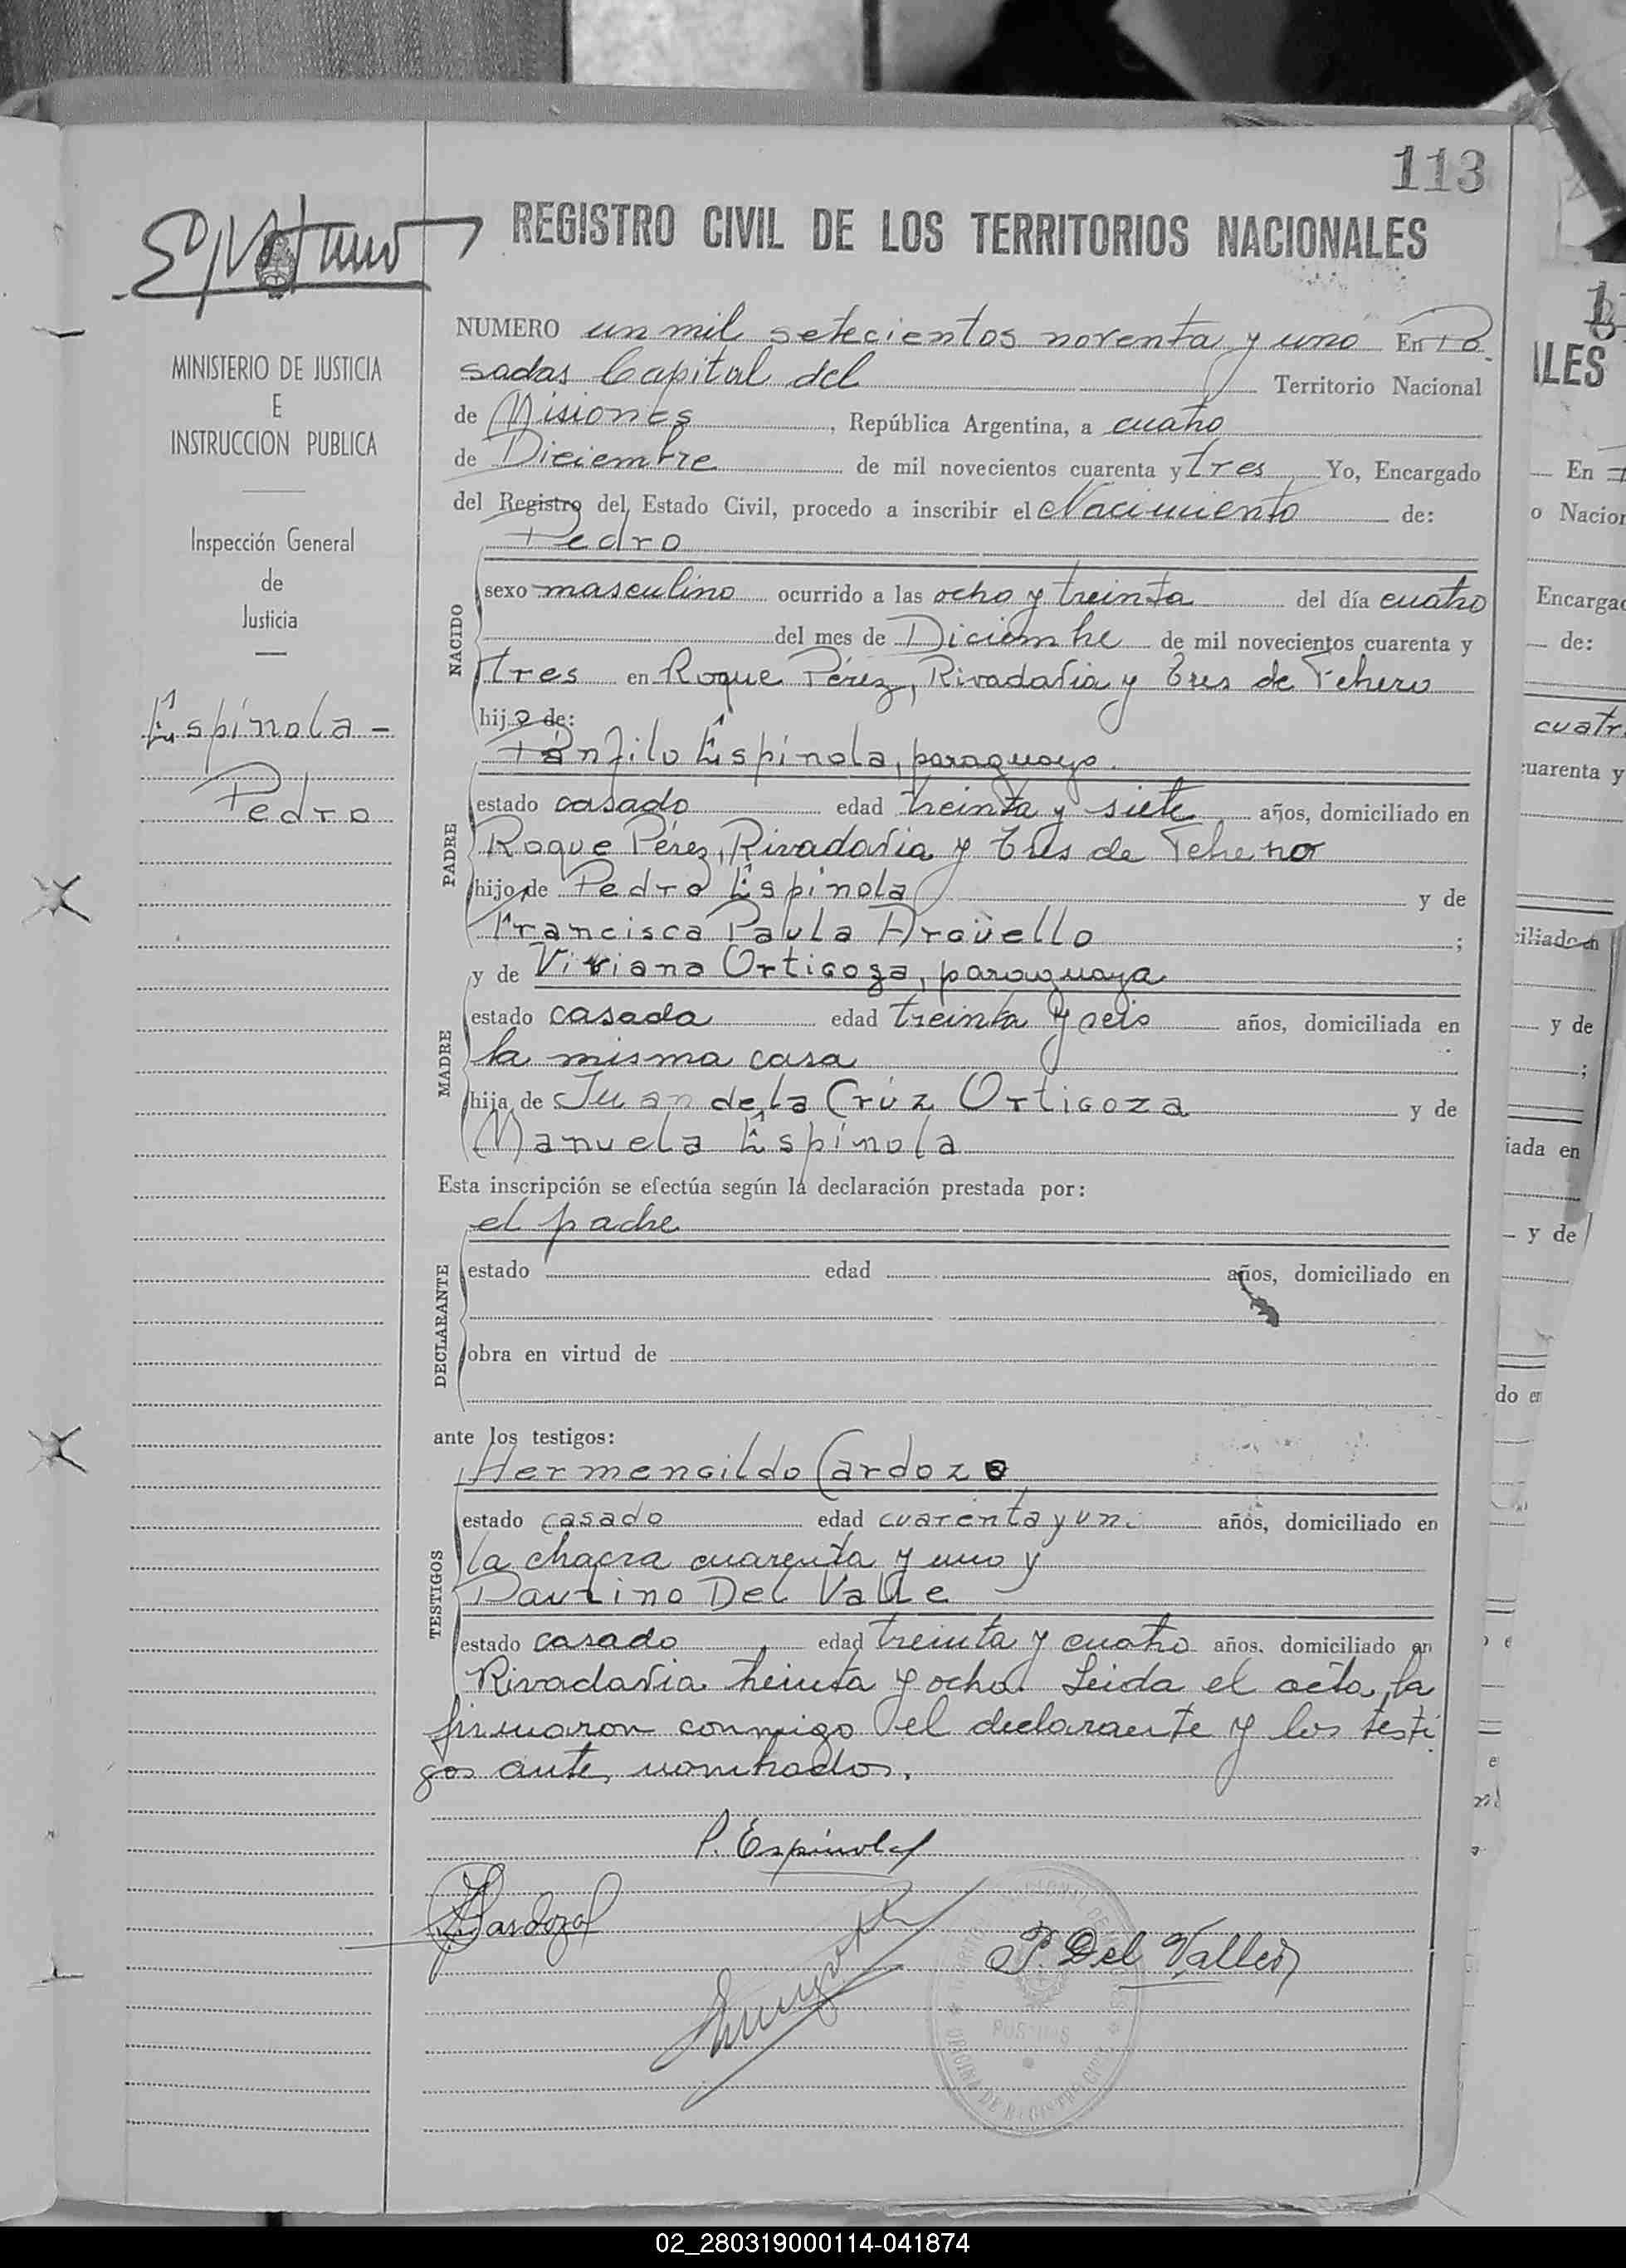 113
REGISTRO CIVIL DE LOS TERRITORIOS NACIONALES
MINISTERIO DE JUSTICIA
E
INSTRUCCION PUBLICA
Inspección General
de
Justicia
Espínola -
Pedro
NUMERO un mil setecientos noventa y uno En Po
sadas Capital del Territorio Nacional
de Misiones, República Argentina, a cuatro
de Diciembre de mil novecientos cuarenta y tres Yo, Encargado
del Registro del Estado Civil, procedo a inscribir el Nacimiento de:
Pedro
NACIDO
sexo masculino ocurrido a las ocho y treinta del día cuatro
del mes de Diciembre de mil novecientos cuarenta y
tres en Roque Pérez, Rivadavia y Tres de Febrero
hijo de:
Pánfilo Espínola, paraguayo.
PADRE
estado casado edad treinta y siete años, domiciliado en
Roque Pérez, Rivadavia y Tres de Febrero
hijo de Pedro Espínola y de
Francisca Paula Argüello ;
y de Viviana Ortigoza, paraguaya
MADRE
estado casada edad treinta y seis años, domiciliada en
la misma casa
hija de Juan de la Crúz Ortigoza y de
Manuela Espínola
Esta inscripción se efectúa según la declaración prestada por:
el padre
DECLARANTE
estado edad años, domiciliado en
obra en virtud de
ante los testigos:
Hermengildo Cardozo
TESTIGOS
estado casado edad cuarenta y un. años, domiciliado en
la chacra cuarenta y uno y
Paulino Del Valle
estado casado edad treinta y cuatro años. domiciliado en
Rivadavia treinta y ocho. Leida el acta, la
firmaron conmigo el declarante y los testi
gos ante nombrados.
P. Espínola
HCardozo
P. Del Valle
02_280319000114-041874